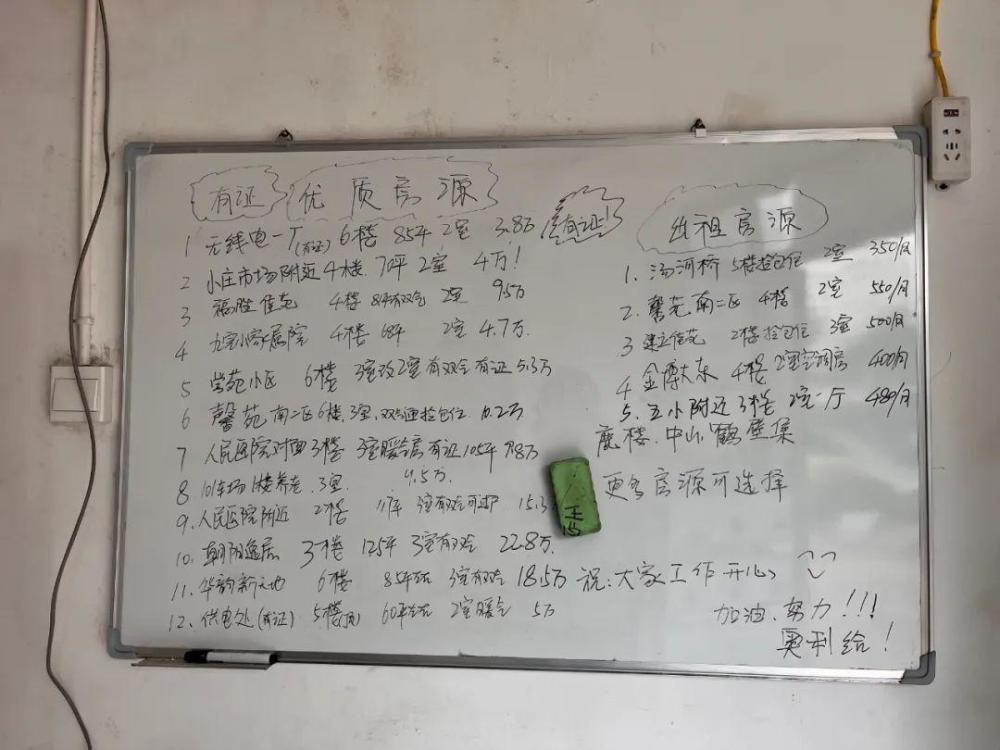 有证 优质房源
1 无线电一厂(有证) 6楼 85平 2室 3.8万 有证!
2 小庄市场附近 4楼 70平 2室 4万!
3 福胜佳苑 4楼 双气 2室 9.5万
4 家属院 4楼 68平 2室 4.7万.
5 学苑小区 6楼 3室改2室有双气有证 5.3万
6 馨苑南二区 6楼.3室.双气通拎包住 6.2万
7 人民医院对面 3楼 3室暖气房有证 105平 7.8万
8 101车场 1楼养老.3室 4.5万.
9.人民医院附近 2楼 3室有双气可 15.3
10.朝阳逸居 3楼 125平 3室有双气 22.8万.
11.华韵新天地 6楼 85平左右 3室有双气 18.5万
12.供电处(有证) 5楼(顶) 60平左右 2室暖气 5万
出租房源
1.汤河桥 5楼拎包住 2室 350/月
2.馨苑南二区 4楼 2室 550/月
3 建立佳苑 2楼拎包住 3室 500/月
4 金博大东 4楼 2室空调房 400/月
5.五小附近 3楼 2室一厅 480/月
鹿楼.中山.鹤壁集
更多房源可选择
祝:大家工作开心
加油.努力!!!
奥利给!